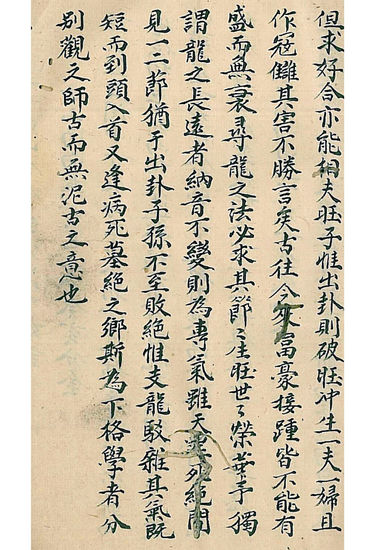 但求好合亦能相夫旺子惟出卦則破旺冲生一夫一婦且
作冠讎其害不勝言矣古往今來富豪接踵皆不能有
盛而無衰尋龍之法必求其節節生旺世世榮華乎獨
謂龍之長遠者納音不變則為專氣雖天
見一二節猶于出卦子孫不至敗絕惟支龍駁雜其氣既
短而到頭入首又逢病死墓絕之鄉斯為下格學者分
別觀之師古而無泥古之意也